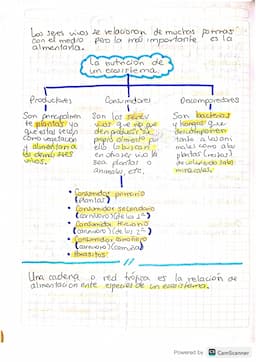 Los seres vivos se relacionan de muchas formas
con el medio pero la más importante es la
alimentaria.
La nutrición de
un ecosistema.
Productores
Son principalmen
te plantas ya
que estas sirven
como vegetación
y alimentan a
los demás seres
vivos.
Consumidores
Son los seres
vivos que no pue
den producir su
propio alimento por
ello lo buscan
en otro ser vivo ya
sea plantas o
animales, etc.
• Consumidor primario
(plantas)
• Consumidor secundario
(carnívoro)
• Consumidor terciario
(carnívoro)
• Consumidor carroñero
(carnívoro)
• Parásitos
Descomponedores
Son bacterias
y hongos que
descomponen
tanto a los ani
males como a las
plantas (restos)
minerales.
Una cadena o red trófica es la relación de
alimentación entre especies de un ecosistema.
Powered by CS CamScanner